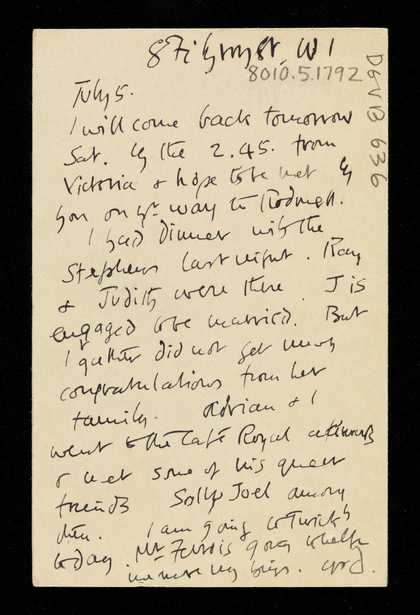 8 Fitzroy St, W 1
8010.5.1792
DGVB 636
July 5.
I will come back tomorrow
Sat. by the 2.45. from
Victoria & hope to be met by
you on yr. way to Rodmell.
I had Dinner with the
Stephens last night. Ray
& Judith were there. J is
engaged to be married. But
I gather did not get much
congratulations from her
family. Adrian & I
went to the Café Royal afterwards
& met some of his queer
friends Solly Joel among
them. I am going to Twick'h
today. Mr Ferris going to help
me move my things.